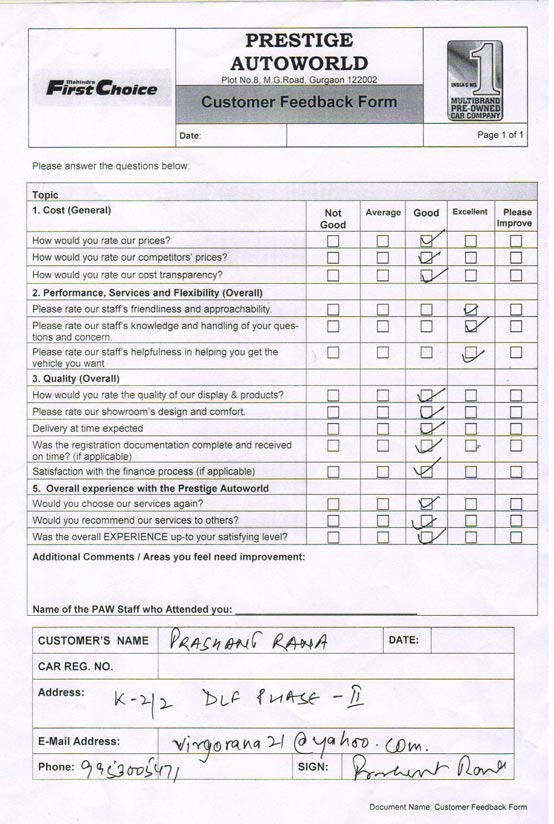 PRESTIGE
AUTOWORLD
Plot No.8, M.G.Road, Gurgaon 122002
Mahindra
First Choice
Customer Feedback Form
INDIA'S NO. 1
MULTIBRAND
PRE-OWNED
CAR COMPANY
Date:
Page 1 of 1
Please answer the questions below:
Topic
1. Cost (General) Not Good Average Good Excellent Please Improve
How would you rate our prices?
How would you rate our competitors' prices?
How would you rate our cost transparency?
2. Performance, Services and Flexibility (Overall)
Please rate our staff's friendliness and approachability.
Please rate our staff's knowledge and handling of your ques-
tions and concern.
Please rate our staff's helpfulness in helping you get the
vehicle you want
3. Quality (Overall)
How would you rate the quality of our display & products?
Please rate our showroom's design and comfort.
Delivery at time expected
Was the registration documentation complete and received
on time? (if applicable)
Satisfaction with the finance process (if applicable)
5. Overall experience with the Prestige Autoworld
Would you choose our services again?
Would you recommend our services to others?
Was the overall EXPERIENCE up-to your satisfying level?
Additional Comments / Areas you feel need improvement:
Name of the PAW Staff who Attended you:
CUSTOMER'S NAME PRASHANT RANA DATE:
CAR REG. NO.
Address: K-2/2 DLF PHASE - II
E-Mail Address: virgorana21@yahoo.com.
Phone: 9953005471 SIGN: Prashant Rana
Document Name: Customer Feedback Form